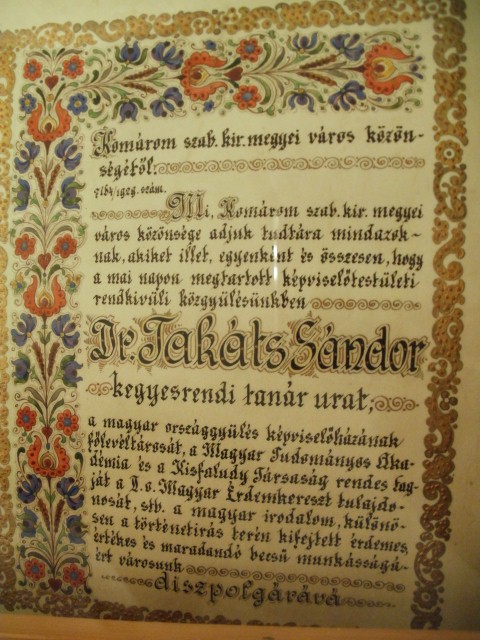 Komárom szab. kir. megyei város közön-
ségétől.
/1929. szám.
Mi, Komárom szab. kir. megyei
város közönsége adjuk tudtára mindazok-
nak, akiket illet, egyenként és összesen, hogy
a mai napon megtartott képviselőtestületi
rendkivüli közgyülésünkben
Dr. Takáts Sándor
kegyesrendi tanár urat,
a magyar országgyülés képviselőházának
főlevéltárosát, a Magyar Tudományos Aka-
démia és a Kisfaludy Társaság rendes tag-
ját a II. o. Magyar Érdemkereszt tulajdo-
nosát, stb. a magyar irodalom, különö-
sen a történetirás terén kifejtett érdemes,
értékes és maradandó becsü munkásságá-
ért városunk
diszpolgárává